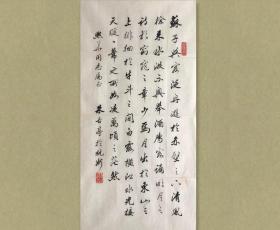 蘇子與客泛舟遊於赤壁之下清風
徐來水波不興舉酒屬客誦明月之
詩歌窈窕之章少焉月出於東山之
上徘徊於斗牛之間白露橫江水光接
天縱一葦之所如凌萬頃之茫然
同志屬正
於杭州